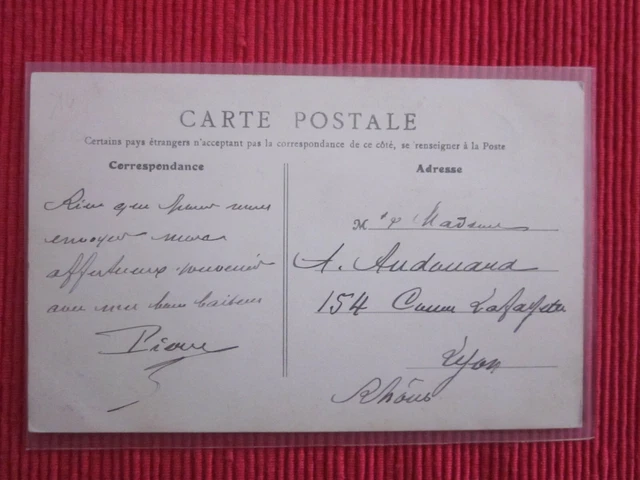 CARTE POSTALE
Certains pays étrangers n'acceptant pas la correspondance de ce côté, se renseigner à la Poste
Correspondance
Rien que pour vous
envoyer mon
affectueux souvenir
avec mes bons baisers
Pierre
Adresse
M. & Madame
A. Audouard
154 Cours Lafayette
Lyon
Rhône